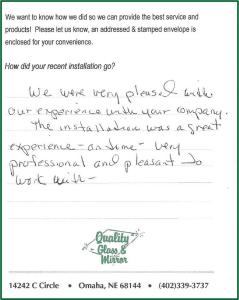 We want to know how we did so we can provide the best service and
products! Please let us know, an addressed & stamped envelope is
enclosed for your convenience.
How did your recent installation go?
We were very pleased with
our experience with your company.
The installation was a great
experience - on time - very
professional and pleasant to
work with -
Quality
Glass &
Mirror
14242 C Circle • Omaha, NE 68144 • (402)339-3737